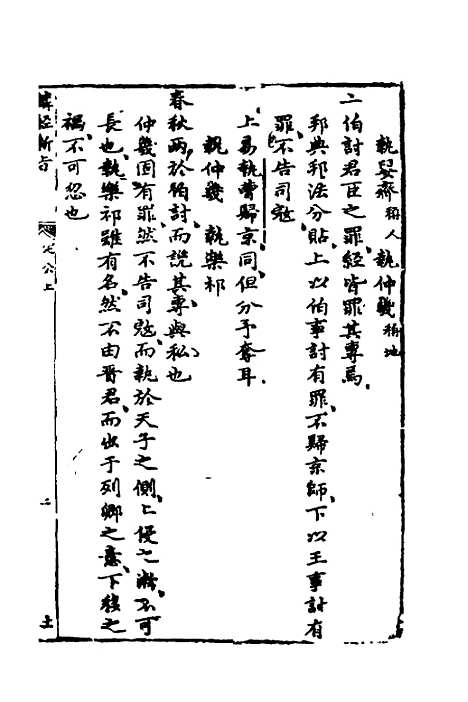 執嬰齊稱人 執仲幾稱地
二伯討君臣之罪經皆罪其專焉
邦典邦法分貼上以伯事討有罪不歸京師下以王事討有
罪不告司寇
上易執曹歸京同但分予奪耳
執仲幾 執樂祁
春秋兩於伯討而說其專與私也
仲幾固有罪然不告司寇而執於天子之側上侵之漸不可
長也執樂祁雖有名然不由晉君而出于列卿之意下移之
禍不可忽也
麟經新旨 定公上 二